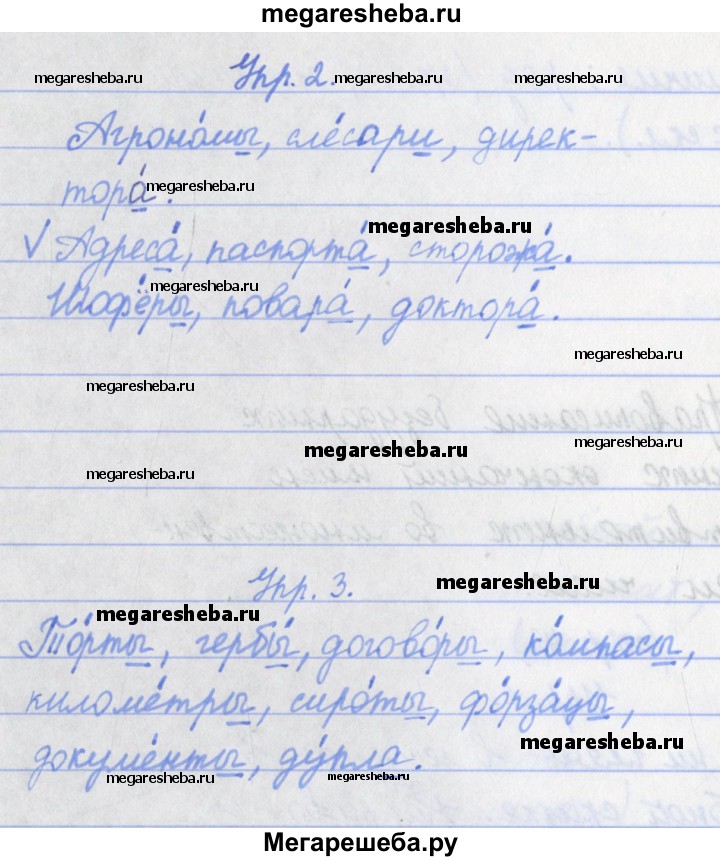 megaresheba.ru
Упр. 2.
megaresheba.ru megaresheba.ru megaresheba.ru
Агроно́мы, сле́сари, дирек-
тора́.
megaresheba.ru
megaresheba.ru
√ Адреса́, паспорта́, сторожа́.
megaresheba.ru
Шофёры, повара́, доктора́.
megaresheba.ru
megaresheba.ru
megaresheba.ru
megaresheba.ru
megaresheba.ru
Упр. 3.
megaresheba.ru
megaresheba.ru
То́рты, гербы́, догово́ры, ко́мпасы,
киломе́тры, сиро́ты, фо́рза́цы,
megaresheba.ru
докуме́нты, ду́пла.
megaresheba.ru megaresheba.ru
Мегарешеба.ру